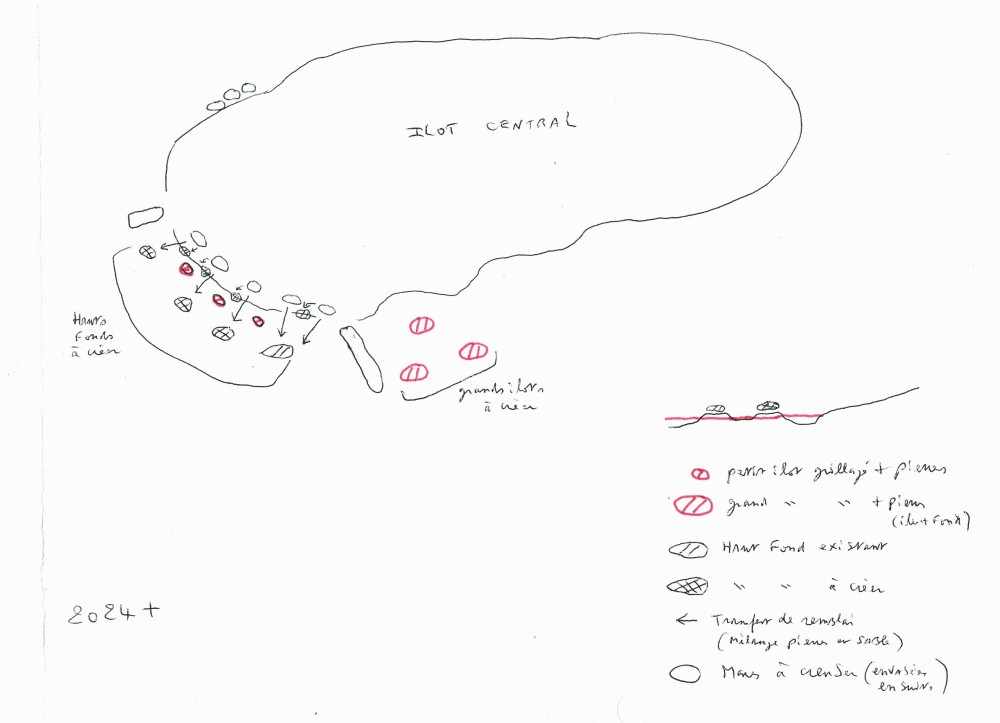 ILOT CENTRAL
Hauts
Fonds
à créer
grands ilots
à créer
petit ilot grillagé + pierres
grand " " + pierres
(ilot + Fond)
Haut Fond existant
" " à créer
← Transfert de remblai
(Mélange pierres et sable)
Mares à creuser (envasées
ensuite)
2024+